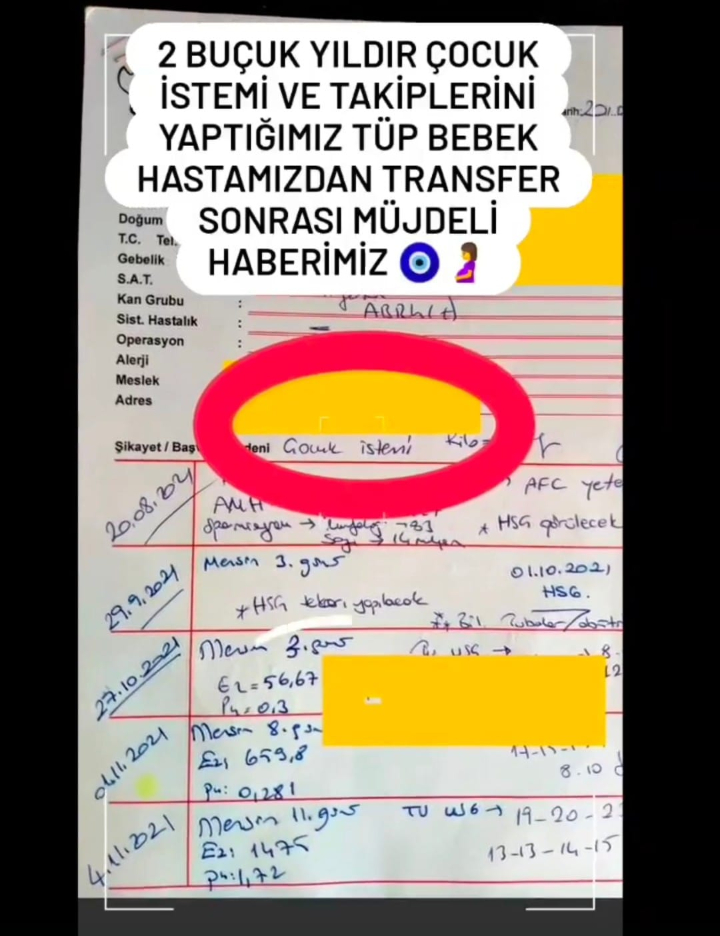 2 BUÇUK YILDIR ÇOCUK
İSTEMİ VE TAKİPLERİNİ
YAPTIĞIMIZ TÜP BEBEK
HASTAMIZDAN TRANSFER
SONRASI MÜJDELİ
HABERİMİZ 🧿 🤰
Doğum
T.C. Tel.
Gebelik
S.A.T.
Kan Grubu :
Sist. Hastalık :
Operasyon :
Alerji
Meslek
Adres
Şikayet / Baş deni Çocuk istemi Kilo=
20.08.2021 AMH AFC yete
Spermiogram → 83 * HSG görülecek
Sayı → 14 milyon
29.9.2021 Mensin 3. günü 01.10.2021
HSG.
* HSG tekrarı yapılacak ** Bil. Tubaler
27.10.2021 Mensin 3. günü
E2=56,67
P4=0,3
Mensin 8. gün
E2: 659,8
P4: 0,281 8.10
4.11.2021 Mensin 11. günü TV USG → 19-20-2
E2: 1475 13-13-14-15
P4: 1,72